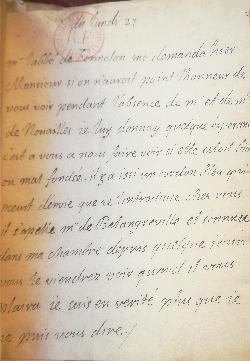 ce lundi 27
R.F.
mr l'abbé de fenelon me demanda hier
Monsieur si on n'auroit point l'honneur de
vous voir pendant l'absence de mr et de me
de Nouailles je luy donnay quelque esperance
c'est a vous a nous faire voir si elle estoit bien
ou mal fondée. il y a issi un cordon bleu qui
meurt denvie que je l'introduise chez vous
il s'apelle mr de Belangreville et sonnera
dans ma chambre depuis quelque jours
vous le viendrez voir quand il vous
plaira je suis en verité plus que je
ne puis vous dire